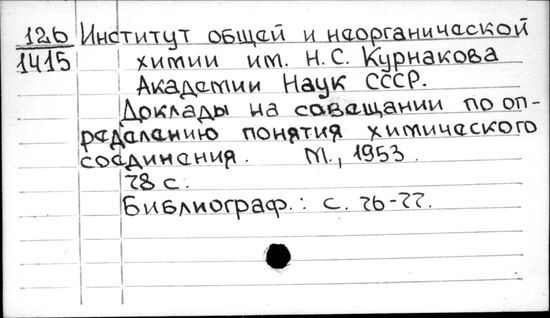 126 Институт общей и неорганической
1415 химии им. Н.С. Курнакова
Академии Наук СССР.
Доклады на совещании по оп-
ределению понятия химического
соединения. М., 1953.
78 с.
Библиограф.: с. 76-77.